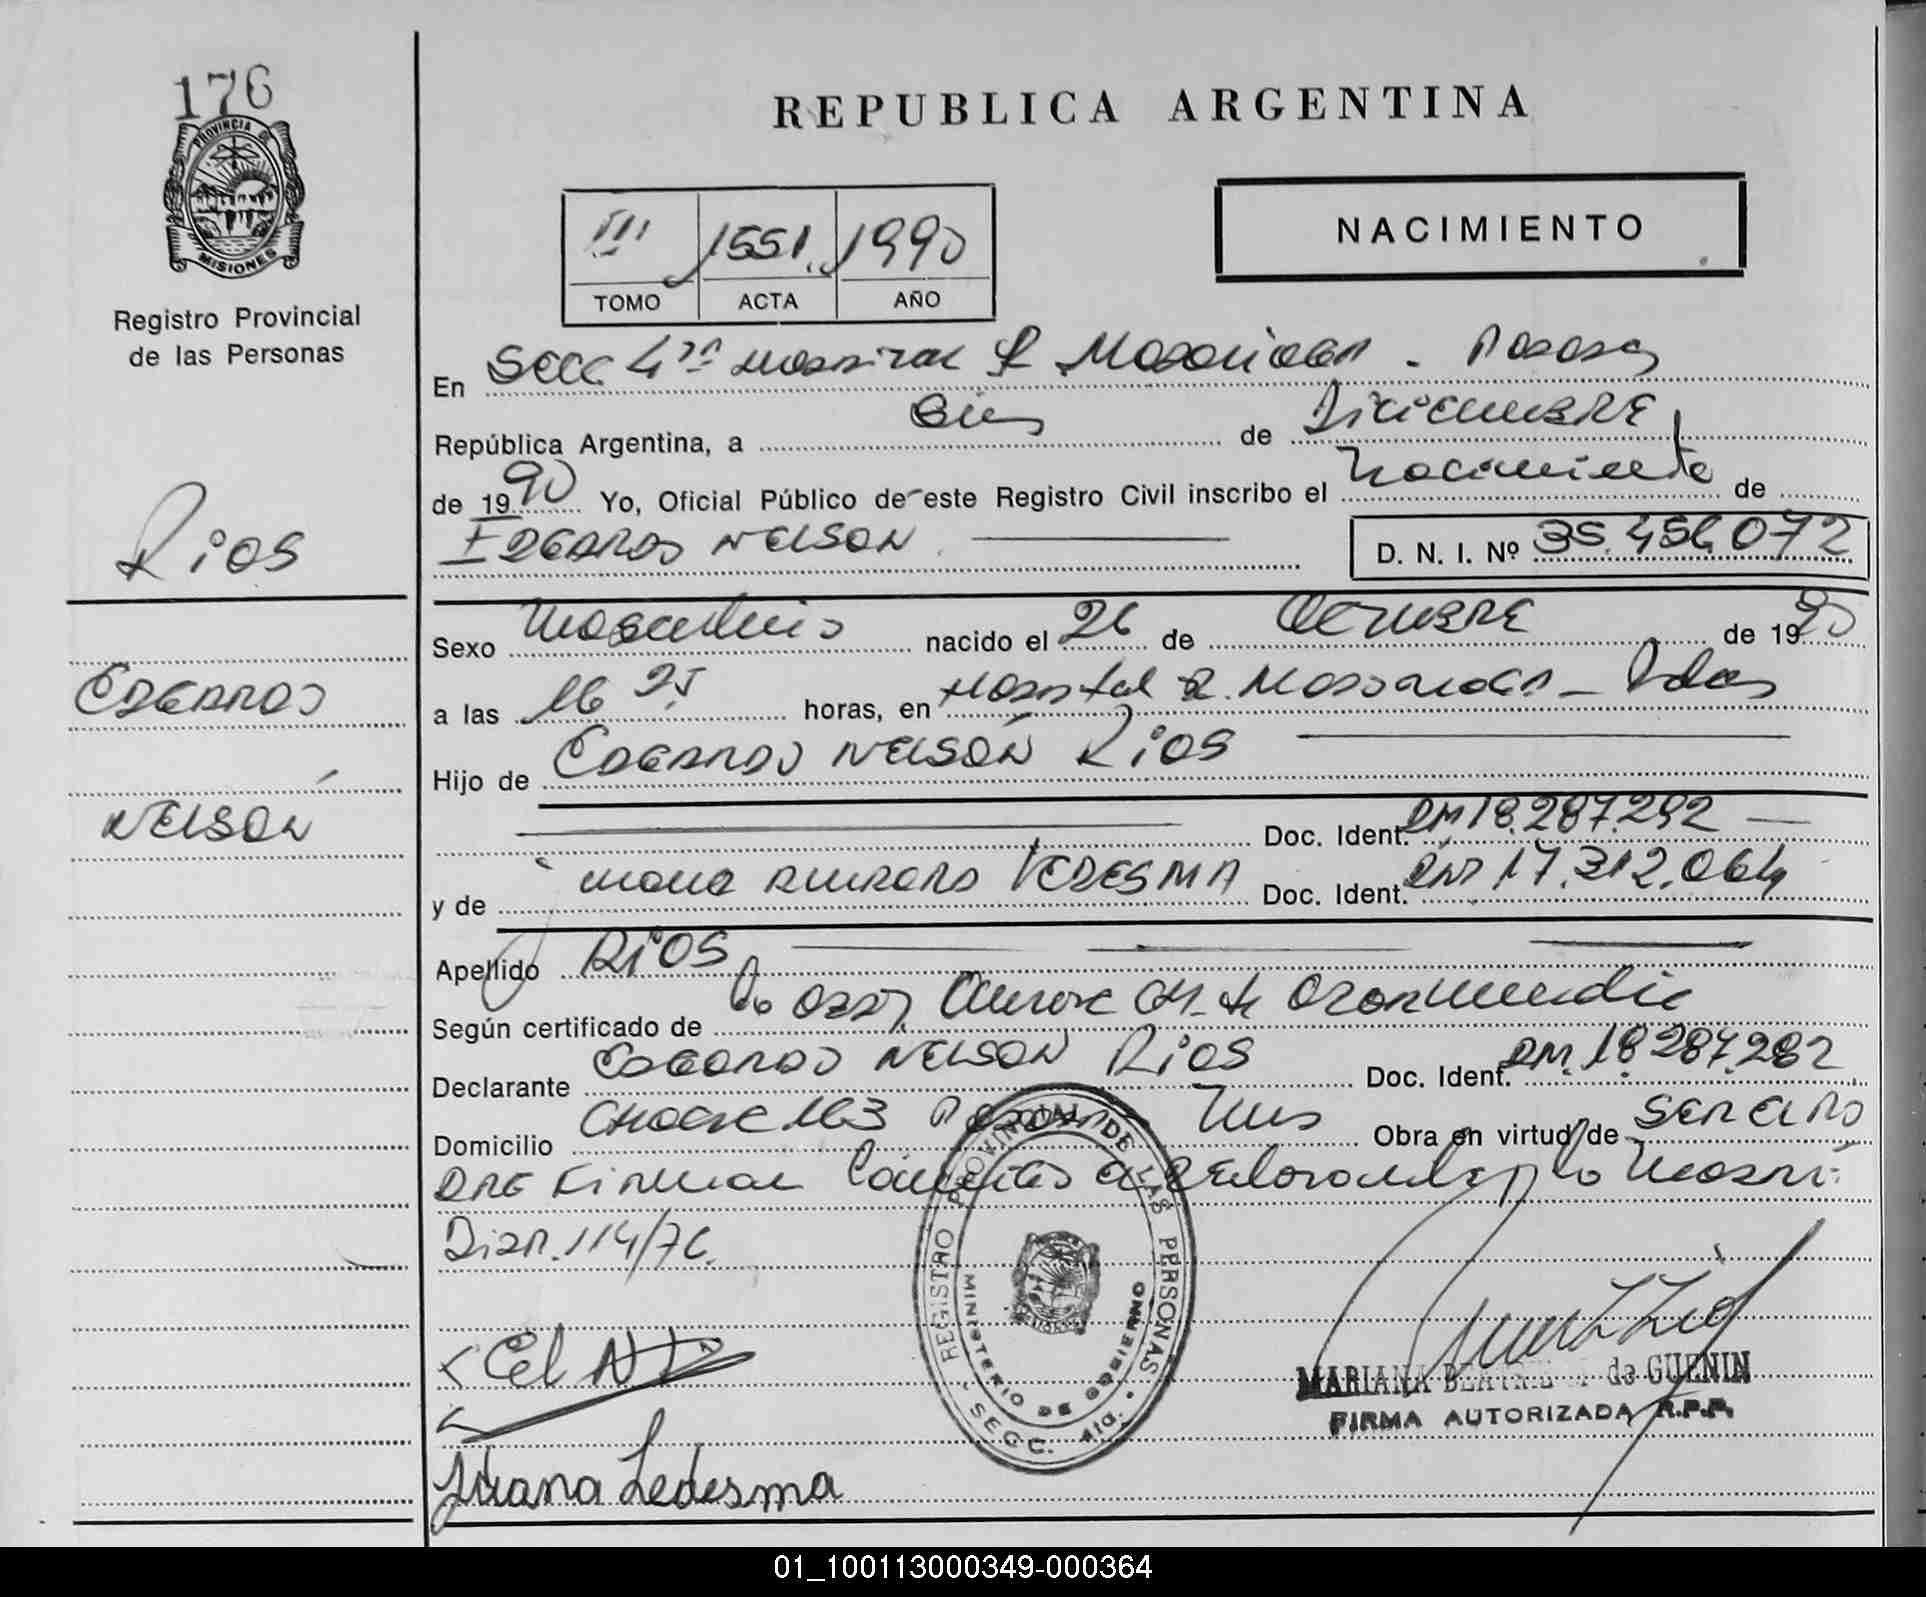 176
PROVINCIA DE
MISIONES
Registro Provincial
de las Personas
Rios
Edgardo
Nelson
REPUBLICA ARGENTINA
III 1551 1990
TOMO ACTA AÑO
NACIMIENTO
En Secc 4ta Hospital R. Madariaga - Posadas
República Argentina, a Diez de Diciembre
de 1990 Yo, Oficial Público de este Registro Civil inscribo el Nacimiento de
Edgardo Nelson D. N. I. Nº 35.456.072
Sexo Masculino nacido el 26 de Octubre de 1990
a las 16 25 horas, en Hospital R. Madariaga - Pdas
Hijo de Edgardo Nelson Rios
Doc. Ident. DNI 18.287.292
y de Ledesma Doc. Ident. DNI 17.312.064
Apellido Rios
Según certificado de
Declarante Edgardo Nelson Rios Doc. Ident. DNI 18.287.282
Domicilio 163 Obra en virtud de
Disp. 114/76.
REGISTRO PROVINCIAL DE LAS PERSONAS
MINISTERIO DE GOBIERNO
SECC. 4ta.
MARIANA de GUENIN
FIRMA AUTORIZADA R.P.P.
Juana Ledesma
01_100113000349-000364